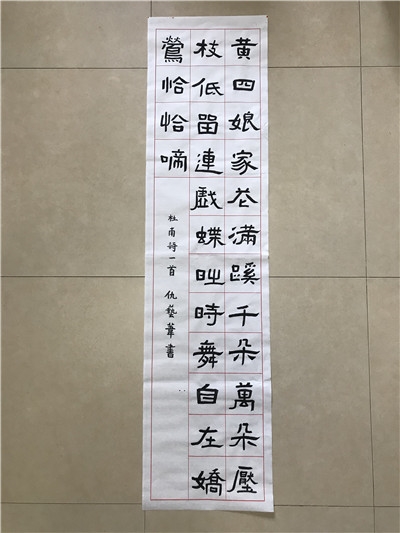 黄四娘家花滿蹊千朵萬朵壓
枝低留連戲蝶時時舞自在嬌
鶯恰恰啼
杜甫詩一首 仇藝葦書